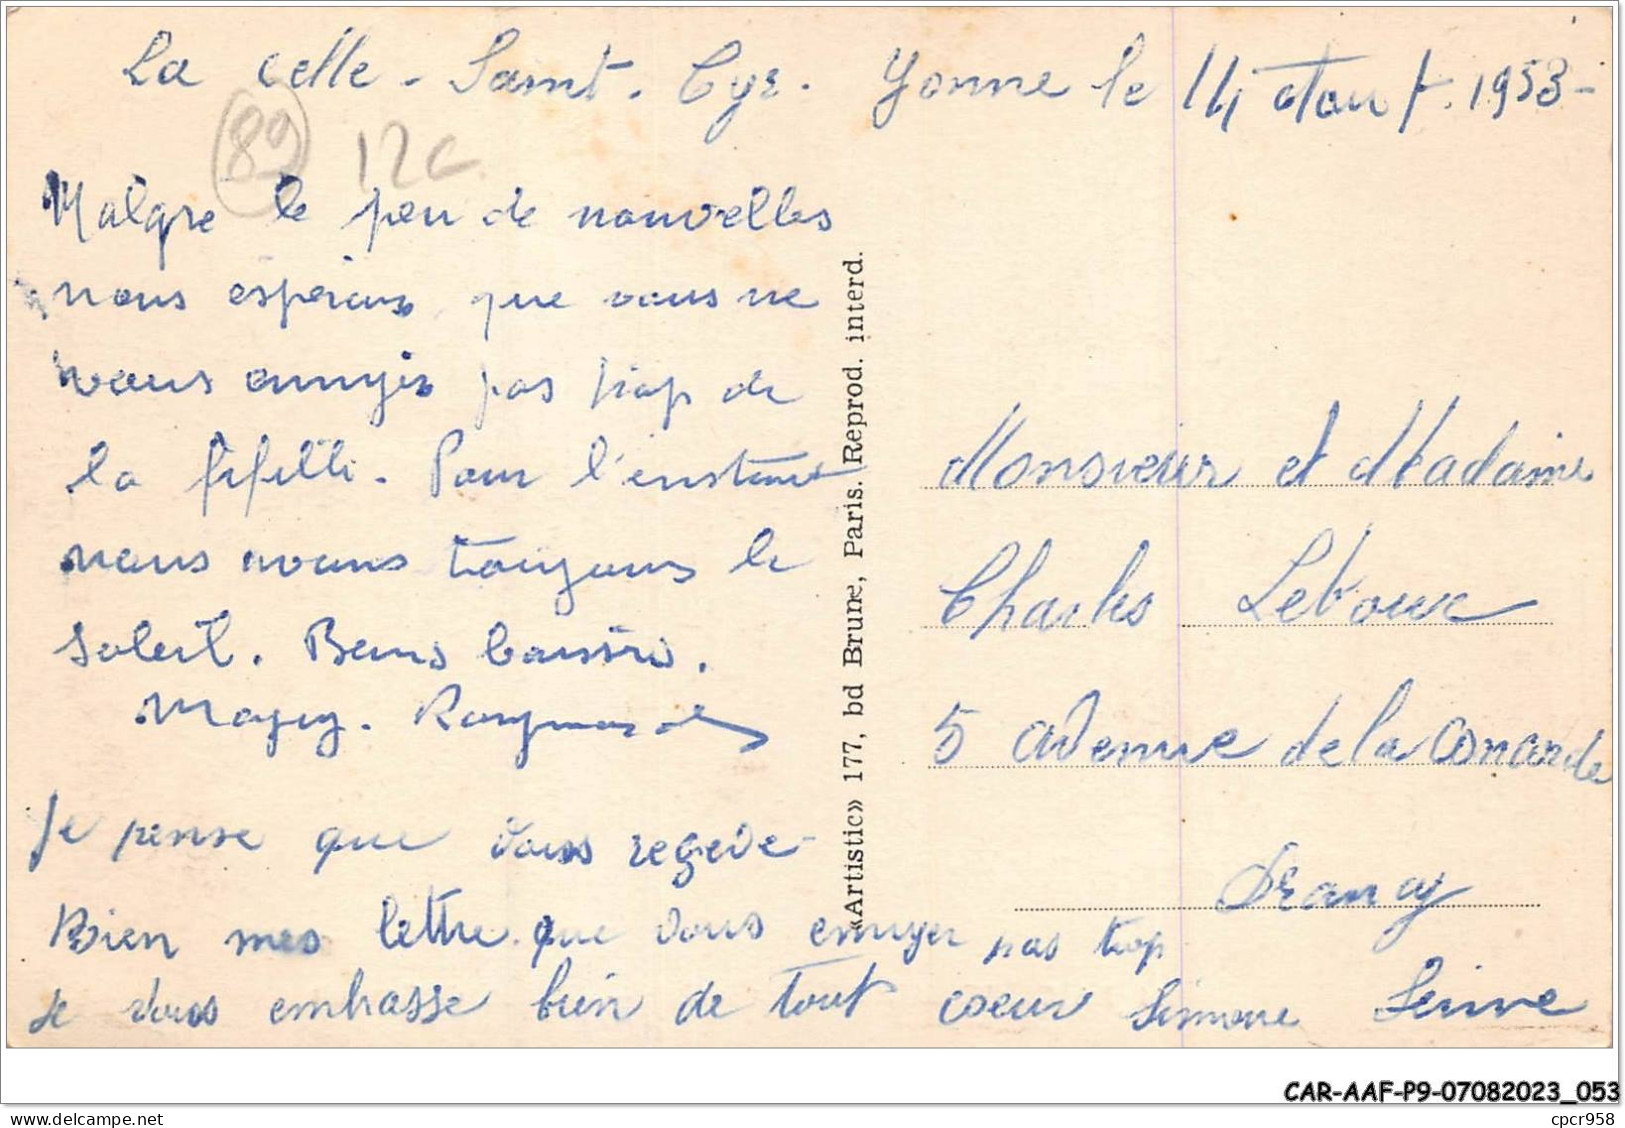 La Celle - Saint. Cyr. Yonne le 14 Aout. 1953-
89
12c
Malgre le peu de nouvelles
nous espérons que vous ne
vous ennuyez pas trop de
la fifille. Pour l'instant
nous avons toujours le
soleil. Bons baisers.
Maguy. Raymonde
Je pense que vous regeve-
Bien mes lettre que vous ennuyer pas trop
je vous embrasse bien de tout coeur Simone
«Artistic» 177, bd Brune, Paris. Reprod. interd.
Monsieur et Madame
Charles
5 avenue de la
Drancy
Seine
CAR-AAF-P9-07082023_053
cpcr958